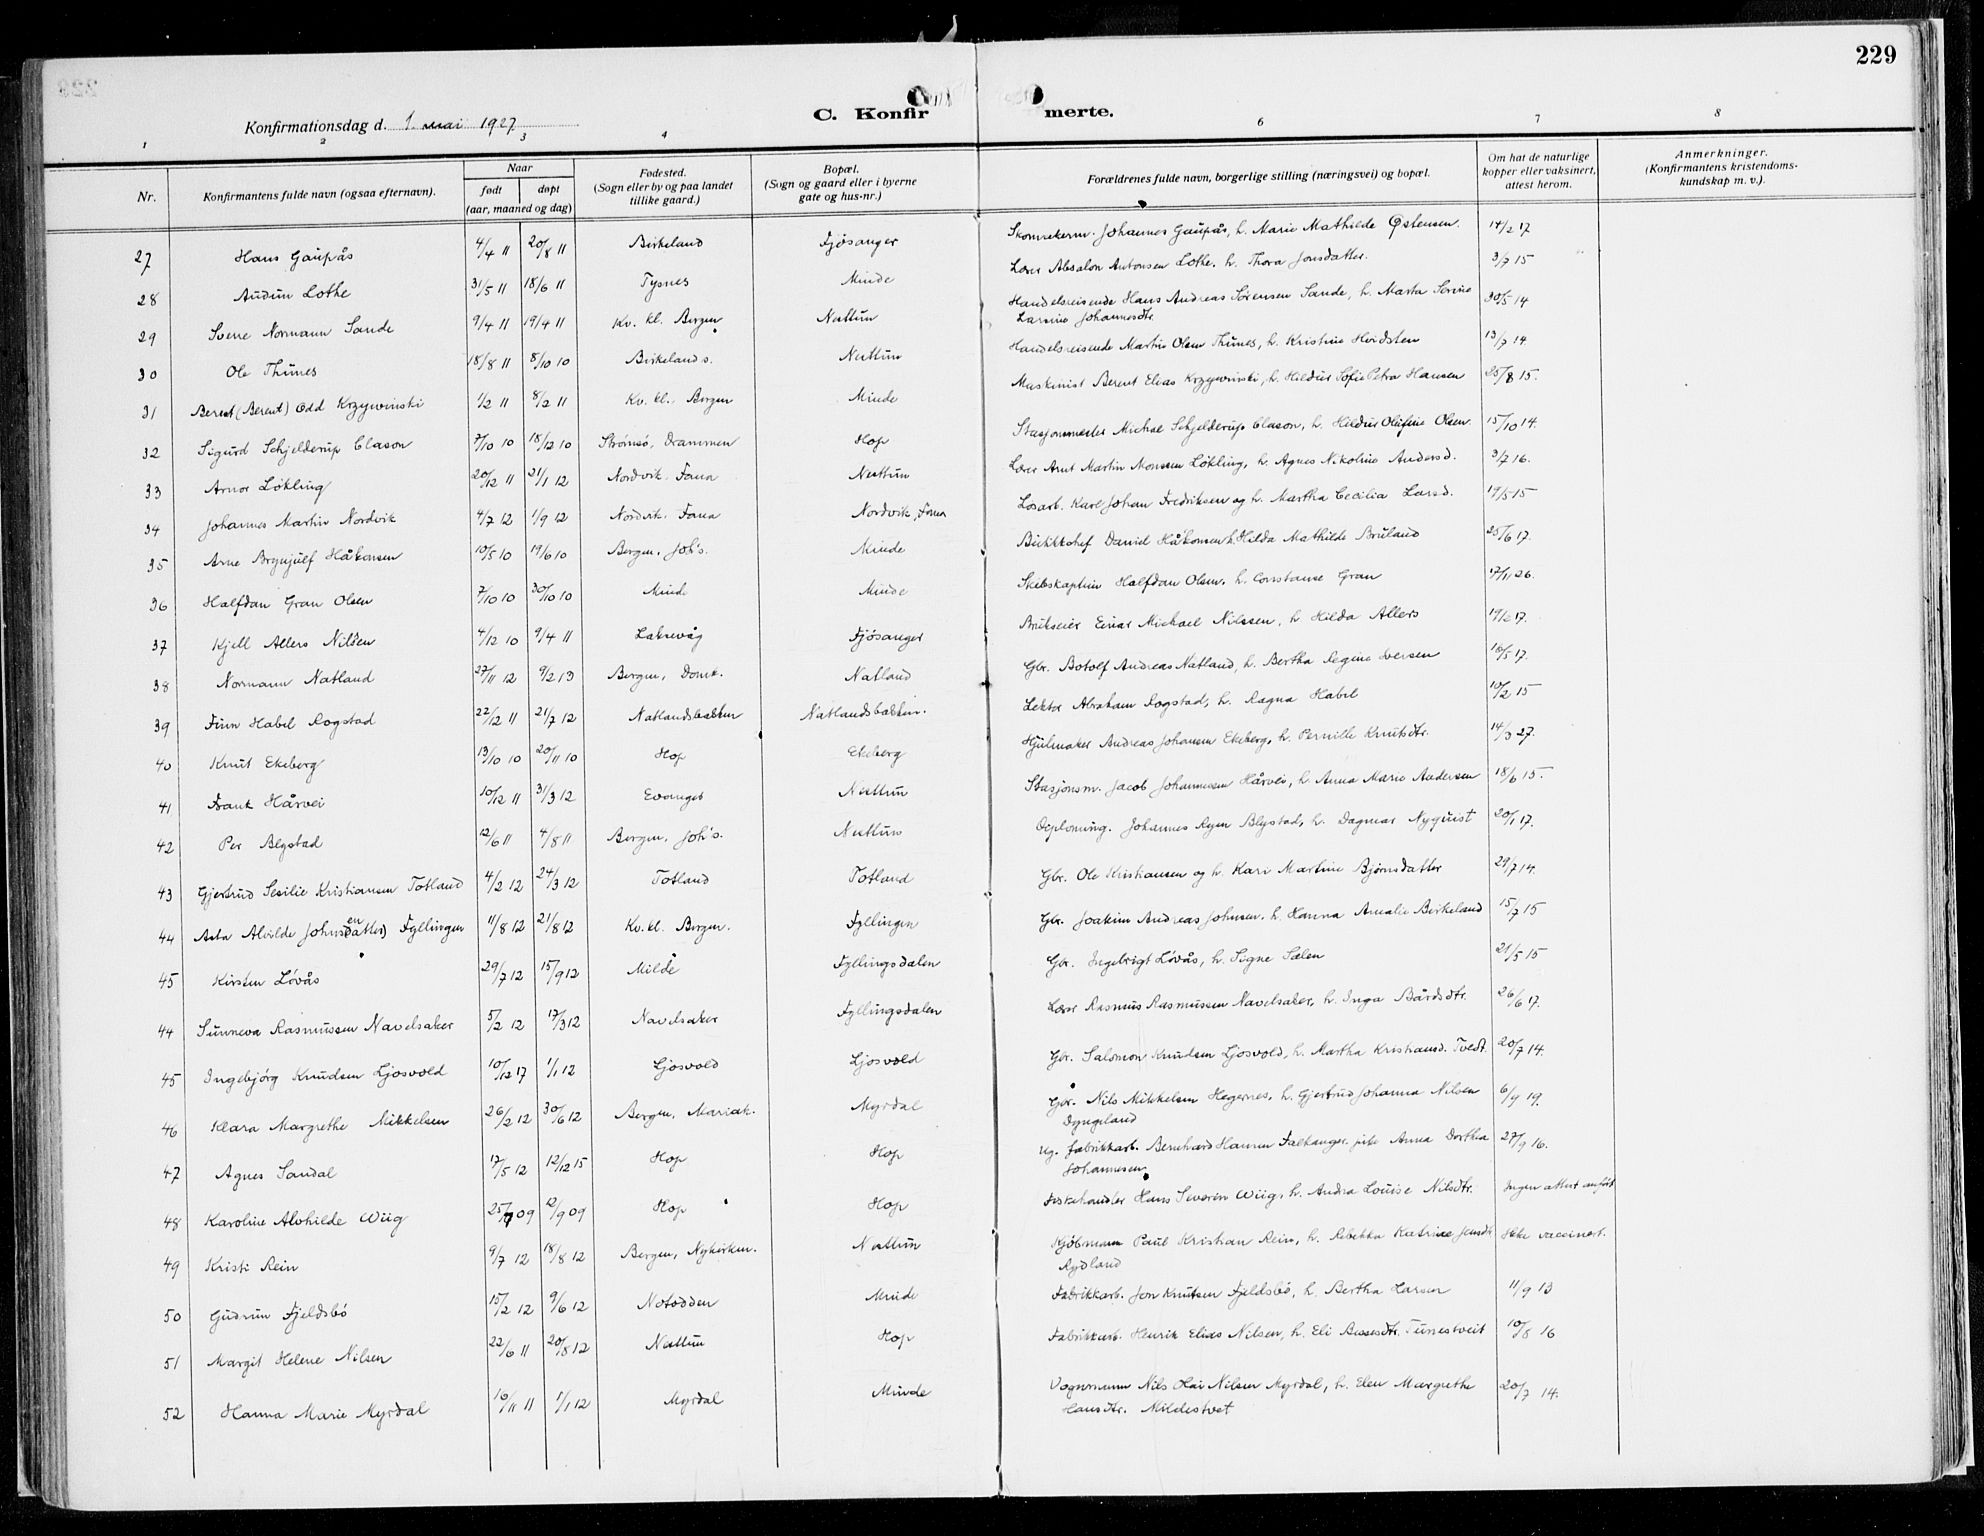 229
Konfirmationsdag d. 1. mai 1927
C. Konfirmerte.
1 2 3 4 6 7 8
Nr. Konfirmantens fulde navn (ogsaa efternavn). Naar født døpt (aar, maaned og dag) Fødested. (Sogn eller by og paa landet tillike gaard.) Bopæl. (Sogn og gaard eller i byerne gate og hus-nr.) Forældrenes fulde navn, borgerlige stilling (næringsvei) og bopæl. Om hat de naturlige kopper eller vaksinert, attest herom. Anmerkninger. (Konfirmantens kristendomskundskap m. v.).
27 Hans Gaupås 4/4 11 20/8 11 Birkeland Fjøsanger Johannes Gaupås, h. Marie Mathilde Østensen. 14/2 17
28 Audun Lothe 31/5 11 18/6 11 Tysnes Minde Lærer Absalon Antonsen Lothe, h. Thora Jonsdatter. 3/7 15
29 Sverre Normann Sande 9/4 11 19/4 11 Kv. kl. Bergen Nesttun Handelsreisende Hans Andreas Sørensen Sande, h. Marta Serine Larsine Johannesdtr. 30/5 14
30 Ole Thunes 18/8 11 8/10 10 Birkelands. Nesttun Handelsreisende Martin Olsen Thunes, h. Kristine Hvidsten 13/7 14.
31 Berent (Berent) Odd Krzywinski 1/2 11 8/2 11 Kv. kl. Bergen Minde Maskinist Berent Elias Krzywinski, h. Hildur Sofie Petra Hansen 25/8 15.
32 Sigurd Schjelderup Clason 7/10 10 18/12 10 Strømsø, Drammen Hop Stasjonsmester Michal Schjelderup Clason, h. Hildur Olufine Olsen. 15/10 14.
33 Arnor Løkling 20/12 11 21/1 12 Nordvik. Fana Nesttun Lærer Arnt Martin Monssen Løkling, h. Agnes Nikoline Andersd. 3/7 16.
34 Johannes Martin Nordvik 4/7 12 1/9 12 Nordvik. Fana Nordvik, Fana Løsarb. Karl Johan Fredriksen og h. Martha Cecilia Larsd. 19/5 15
35 Arne Brynjulf Håkonsen 10/5 10 19/6 10 Bergen, Joh's. Minde Daniel Håkonsen h. Hilda Mathilde Bruland 25/6 17.
36 Halfdan Gran Olsen 7/10 10 30/10 10 Minde Minde Skibskaptein Halfdan Olsen. h. Constanse Gran 17/11 26.
37 Kjell Allers Nilsen 4/12 10 9/4 11 Laksevåg Fjøsanger Brukseier Einar Michael Nilssen, h. Hilda Allers 19/2 17.
38 Normann Natland 27/11 12 9/2 13 Bergen, Domk. Natland Gbr. Botolf Andreas Natland, h. Bertha Regine Iversen 10/5 17.
39 Finn Habel Rogstad 22/12 11 21/7 12 Natlandsbakken Natlandsbakken. Lektor Abraham Rogstad, h. Ragna Habel 10/2 15
40 Knut Ekeberg 13/10 10 20/11 10 Hop Ekeberg Hjulmaker Andreas Johansen Ekeberg, h. Pernille Knutsdtr. 14/3 27.
41 Frank Hårvei 10/12 11 31/3 12 Evanger Nesttun Stasjonsm. Jacob Johannessen Hårvei, h. Anna Marie Andersen 18/6 15.
42 Per Blystad 12/6 11 4/8 11 Bergen, Joh's. Nesttun Johannes Ryen Blystad, h. Dagmar Nyquist 20/1 17.
43 Gjertrud Sesilie Kristiansen Totland 4/2 12 24/3 12 Totland Totland Gbr. Ole Kristiansen og h. Kari Martine Bjørnsdatter 29/7 14.
44 Asta Alvilde Johnsen(datter) Fyllingen 11/8 12 21/8 12 Kv. kl. Bergen. Fyllingen Gbr. Joakim Andreas Johnsen. h. Hanna Amalie Birkeland 15/7 15
45 Kirsten Løvås 29/7 12 15/9 12 Milde Fyllingsdalen Gbr. Ingebrigt Løvås, h. Signe Sælen 21/5 15
44 Sunneva Rasmussen Navelsaker 5/2 12 17/3 12 Navelsaker Fyllingsdalen Lærer Rasmus Rasmussen Navelsaker, h. Inga Bårdsdtr. 26/6 17.
45 Ingebjørg Knudsen Ljosvold 10/12 17 1/1 12 Ljosvold Ljosvold Gbr. Salomon Knudsen Ljosvold, h. Martha Kristiansd. Tvedt. 20/7 14.
46 Klara Margrethe Mikkelsen 26/2 12 30/6 12 Bergen, Mariak. Myrdal Gbr. Nils Mikkelsen Hegernes, h. Gjertrud Johanna Nilsen Dyngeland 6/9 19.
47 Agnes Sandal 17/5 12 12/12 15 Hop Hop Ug. fabrikkarb. Bernhard Hansen Falkanger. pike Anna Dorthea Johannesen 27/9 16.
48 Karoline Alvhilde Wiig 25/7 09 12/9 09 Hop Hop Fiskehandler Hans Severin Wiig, h. Andra Louise Nilsdtr. Ingen attest anført
49 Kristi Rein 9/7 12 18/8 12 Bergen, Nykirken. Nesttun Kjøbmann Paul Kristian Rein, h. Rebekka Katrine Jensdtr Rydland Ikke vaccinert.
50 Gudrun Fjeldsbø 15/2 12 9/6 12 Notodden Minde Fabrikkarb. Jon Knutsen Fjeldsbø, h. Bertha Larsen 11/9 13
51 Margit Helene Nilsen 22/6 11 20/8 12 Nesttun Hop Fabrikkarb. Henrik Elias Nilsen, h. Eli Bessesdtr. Tunestveit 10/8 16
52 Hanna Marie Myrdal 10/11 11 1/1 12 Myrdal Minde Vognmann Nils Olai Nilsen Myrdal, h. Elen Margrethe Hansdtr. Mildestvet 20/7 14.